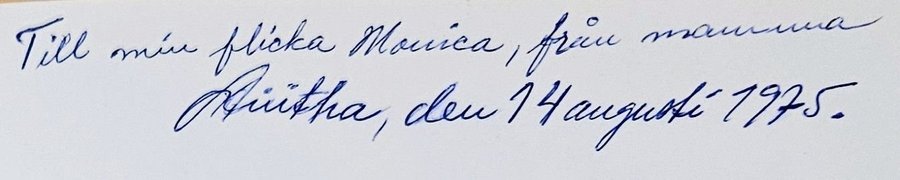 Till min flicka Monica, från mamma
Anitha, den 14 augusti 1975.